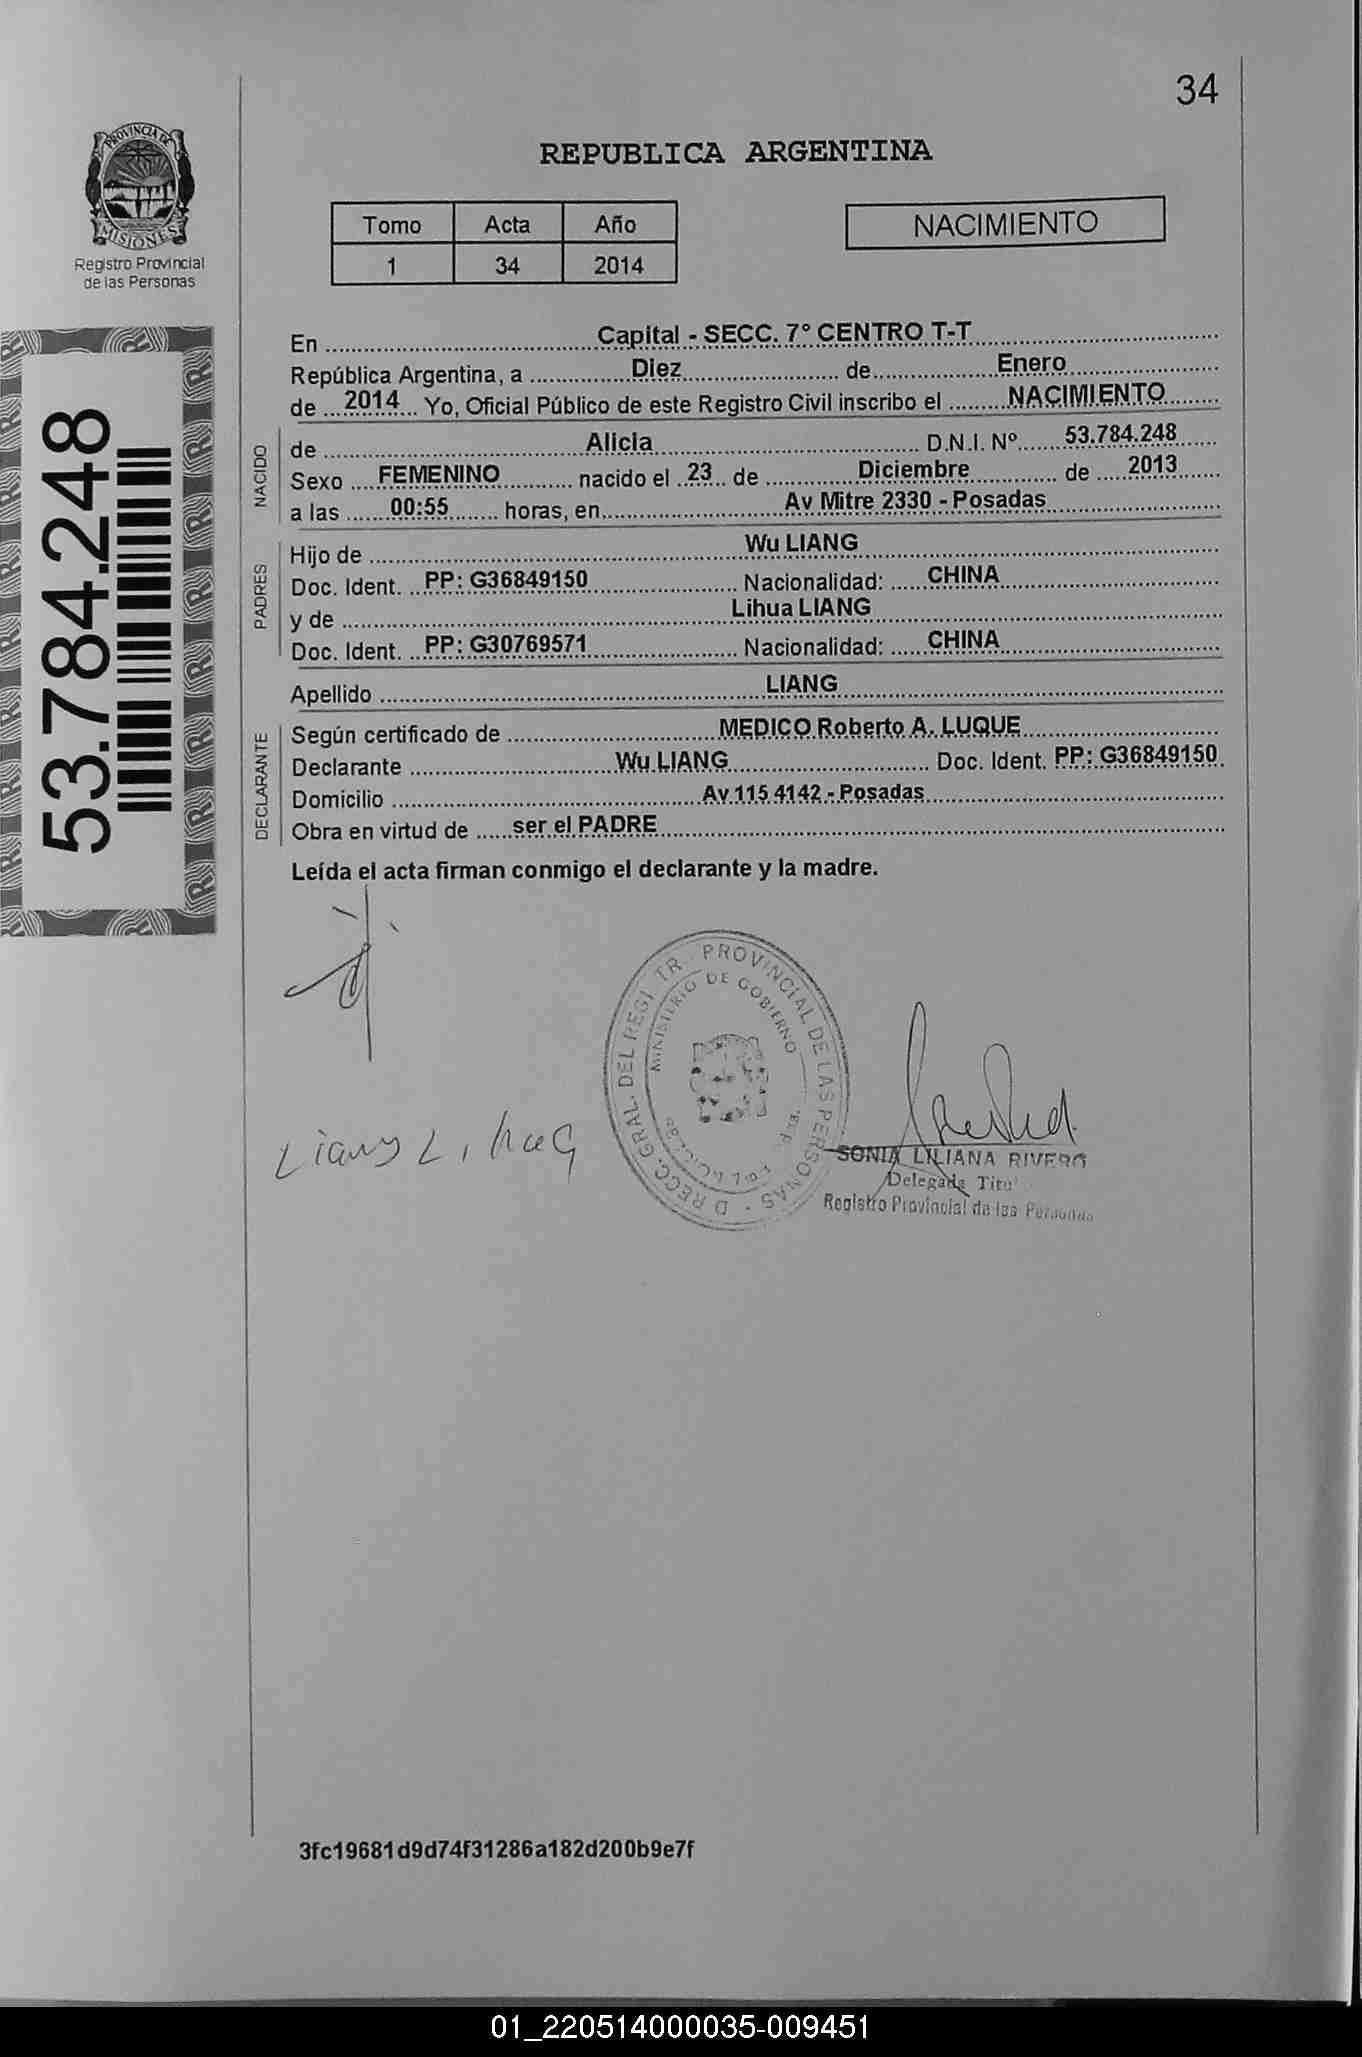 34
PROVINCIA DE
MISIONES
Registro Provincial
de las Personas
REPUBLICA ARGENTINA
Tomo Acta Año
1 34 2014
NACIMIENTO
53.784.248
En Capital - SECC. 7° CENTRO T-T
República Argentina, a Diez de Enero
de 2014 Yo, Oficial Público de este Registro Civil inscribo el NACIMIENTO
NACIDO
de Alicia D.N.I. Nº 53.784.248
Sexo FEMENINO nacido el 23 de Diciembre de 2013
a las 00:55 horas, en Av Mitre 2330 - Posadas
PADRES
Hijo de Wu LIANG
Doc. Ident. PP: G36849150 Nacionalidad: CHINA
y de Lihua LIANG
Doc. Ident. PP: G30769571 Nacionalidad: CHINA
Apellido LIANG
DECLARANTE
Según certificado de MEDICO Roberto A. LUQUE
Declarante Wu LIANG Doc. Ident. PP: G36849150
Domicilio Av 115 4142 - Posadas
Obra en virtud de ser el PADRE
Leída el acta firman conmigo el declarante y la madre.
D RECC. GRAL. DEL REGI TR. PROVINCIAL DE LAS PERSONAS
MINISTERIO DE GOBIERNO
Liang Lihua
SONIA LILIANA RIVERO
Delegada Titu
Registro Provincial de las Personas
3fc19681d9d74f31286a182d200b9e7f
01_220514000035-009451